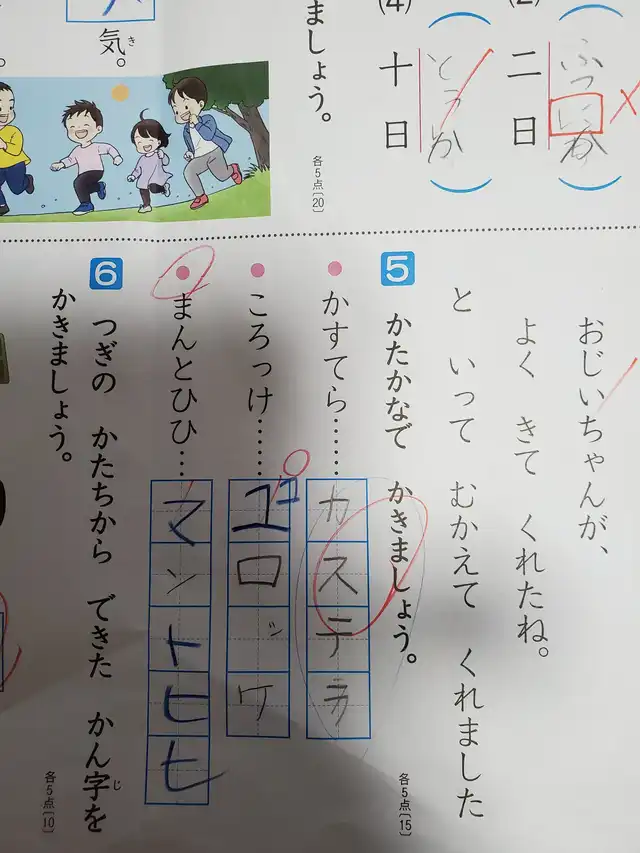 (2)
二日
ふつか
(4)
十日
とうか
ましょう。
各5点〔20〕
気。
き
おじいちゃんが、
よく きて くれたね。
と いって むかえて くれました
5 かたかなで かきましょう。
各5点〔15〕
かすてら……
カステラ
ころっけ……
コロッケ
まんとひひ…
マントヒヒ
6 つぎの かたちから できた かん字を
じ
かきましょう。
各5点〔10〕